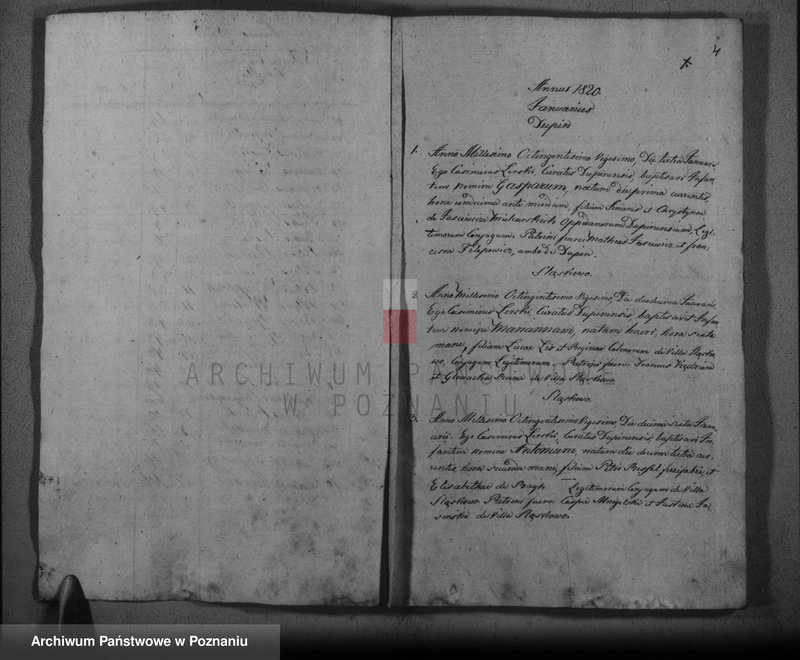 4
1.
Annus 1820.
Januarius
Dupin
1. Anno Millesimo Octingentesimo Vigesimo, Die tertia Januarii
Ego Casimirus Lerski, Curatus Dupinensis, baptisavi Infan-
tem nomine Gasparum, natum die prima currentis,
hora undecima ante meridiem, filium Simonis et Chrystynae
de Jasiewicz Oppidanorum Dupinensium Legi-
timorum Conjugum. Patrini fuere Mathias et Fran-
cisca Filipowicz, ambo de Dupin.
Słąskowo.
2. Anno Millesimo Octingentesimo Vigesimo, Die duodecima Januarii,
Ego Casimirus Lerski Curatus Dupinensis, baptisavi Infan-
tem nomine Mariannam, natam heri, hora sexta
mane, filiam Lucae Lis et Reginae de Villa Słąsko-
wo, Conjugum Legitimorum. Patrini fuere
et de Villa Słąskowo
Słąskowo.
3. Anno Millesimo Octingentesimo Vigesimo, Die decima sexta Janu-
arii. Ego Casimirus Lerski, Curatus Dupinensis, baptisavi In-
fantem nomine Antonium, natum die decima tertia cur-
rentis, hora secunda mane, filium Petri et
Elisabethae de Legitimorum Conjugum de Villa
Słąskowo. Patrini fuere et Justina Ja-
sinska de Villa Słąskowo.
ARCHIWUM PAŃSTWOWE
W POZNANIU
Archiwum Państwowe w Poznaniu